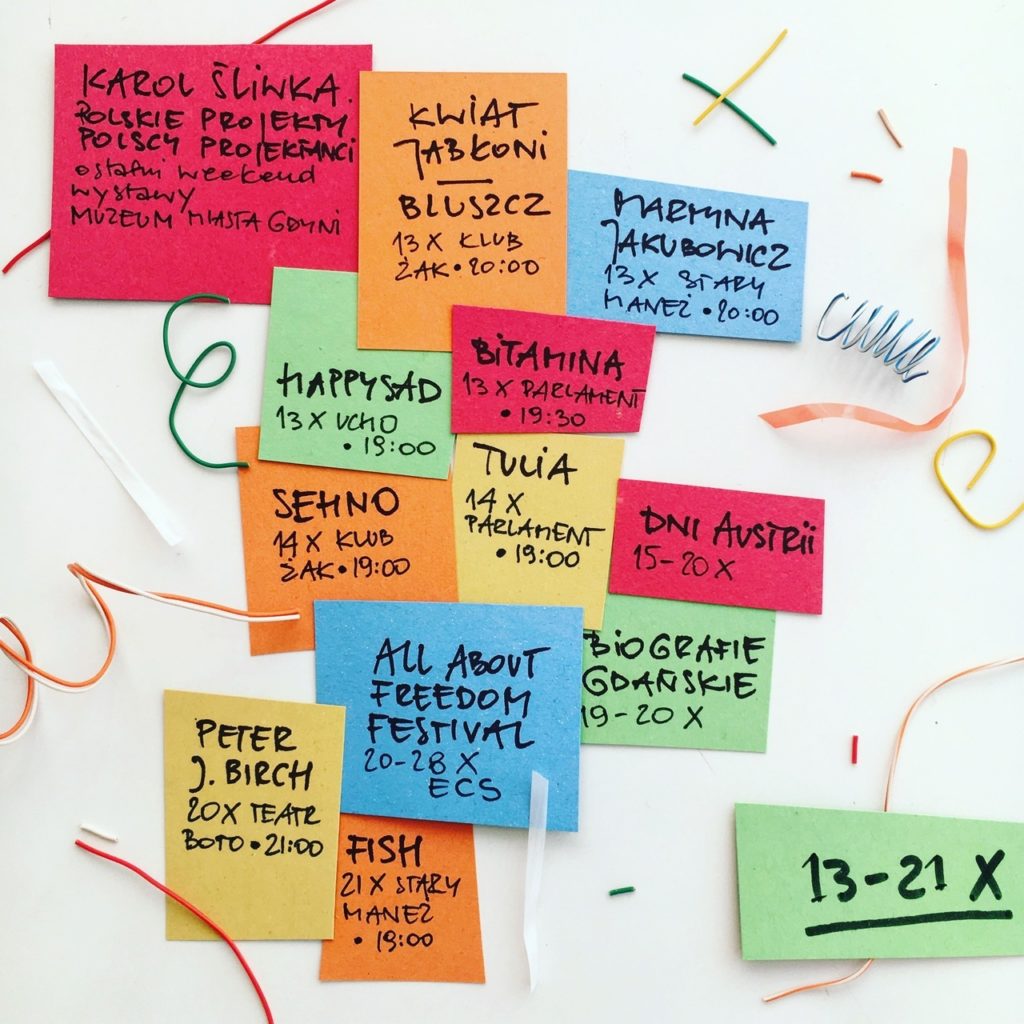 KAROL ŚLIWKA.
POLSKIE PROJEKTY
POLSCY PROJEKTANCI
ostatni weekend
wystawy
MUZEUM MIASTA GDYNI
KWIAT
JABŁONI
—
BLUSZCZ
13 X KLUB
ŻAK • 20:00
MARTYNA
JAKUBOWICZ
13 X STARY
MANEŻ • 20:00
HAPPYSAD
13 X UCHO
• 19:00
BITAMINA
13 X PARLAMENT
• 19:30
SEHNO
14 X KLUB
ŻAK • 19:00
TULIA
14 X
PARLAMENT
• 19:00
DNI AUSTRII
15-20 X
ALL ABOUT
FREEDOM
FESTIVAL
20-28 X
ECS
BIOGRAFIE
GDAŃSKIE
19-20 X
PETER
J. BIRCH
20 X TEATR
BOTO • 21:00
FISH
21 X STARY
MANEŻ
• 19:00
13-21 X